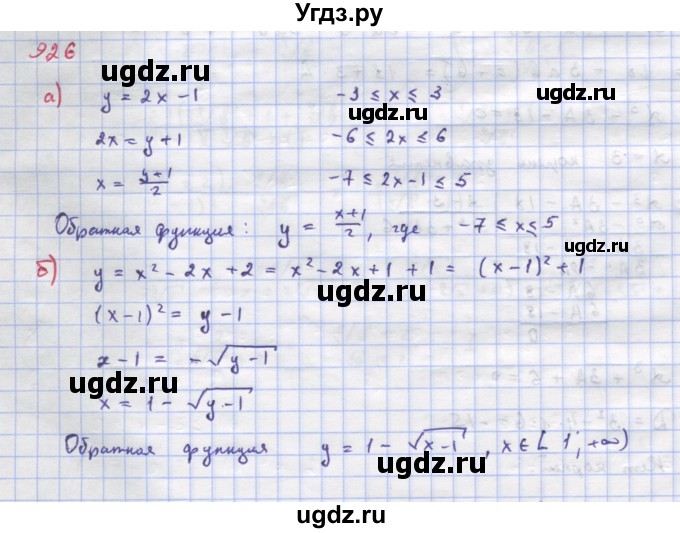 Угдз.ру
926
ugdz.ru ugdz.ru
а) y = 2x - 1 -3 ≤ x ≤ 3
2x = y + 1 -6 ≤ 2x ≤ 6
ugdz.ru ugdz.ru
x = (y+1)/2 -7 ≤ 2x - 1 ≤ 5
Обратная функция: y = (x+1)/2, где -7 ≤ x ≤ 5
ugdz.ru
б) y = x² - 2x + 2 = x² - 2x + 1 + 1 = (x-1)² + 1
ugdz.ru
(x-1)² = y - 1
x - 1 = -√(y-1)
ugdz.ru
x = 1 - √(y-1)
Обратная функция y = 1 - √(x-1), x ∈ [1; +∞)
ugdz.ru ugdz.ru
ugdz.ru